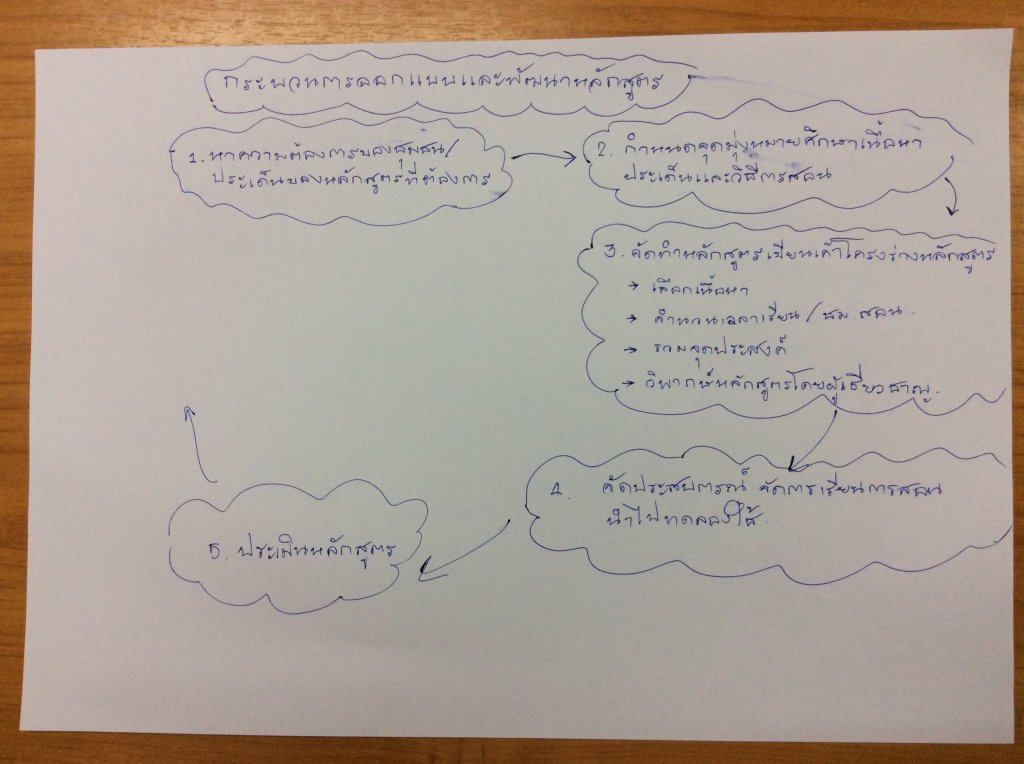 กระบวนการออกแบบและพัฒนาหลักสูตร
1. หาความต้องการของชุมชน/
ประเด็นของหลักสูตรที่ต้องการ
2. กำหนดจุดมุ่งหมายศึกษาเนื้อหา
ประเด็นและวิธีการสอน
3. จัดทำหลักสูตรเขียนเค้าโครงร่างหลักสูตร
→ เลือกเนื้อหา
→ คำนวนเวลาเรียน / ชม. สอน.
→ รวมจุดประสงค์
→ วิพากษ์หลักสูตรโดยผู้เชี่ยวชาญ.
4. จัดประสบการณ์ จัดการเรียนการสอน
นำไปทดลองใช้.
5. ประเมินหลักสูตร